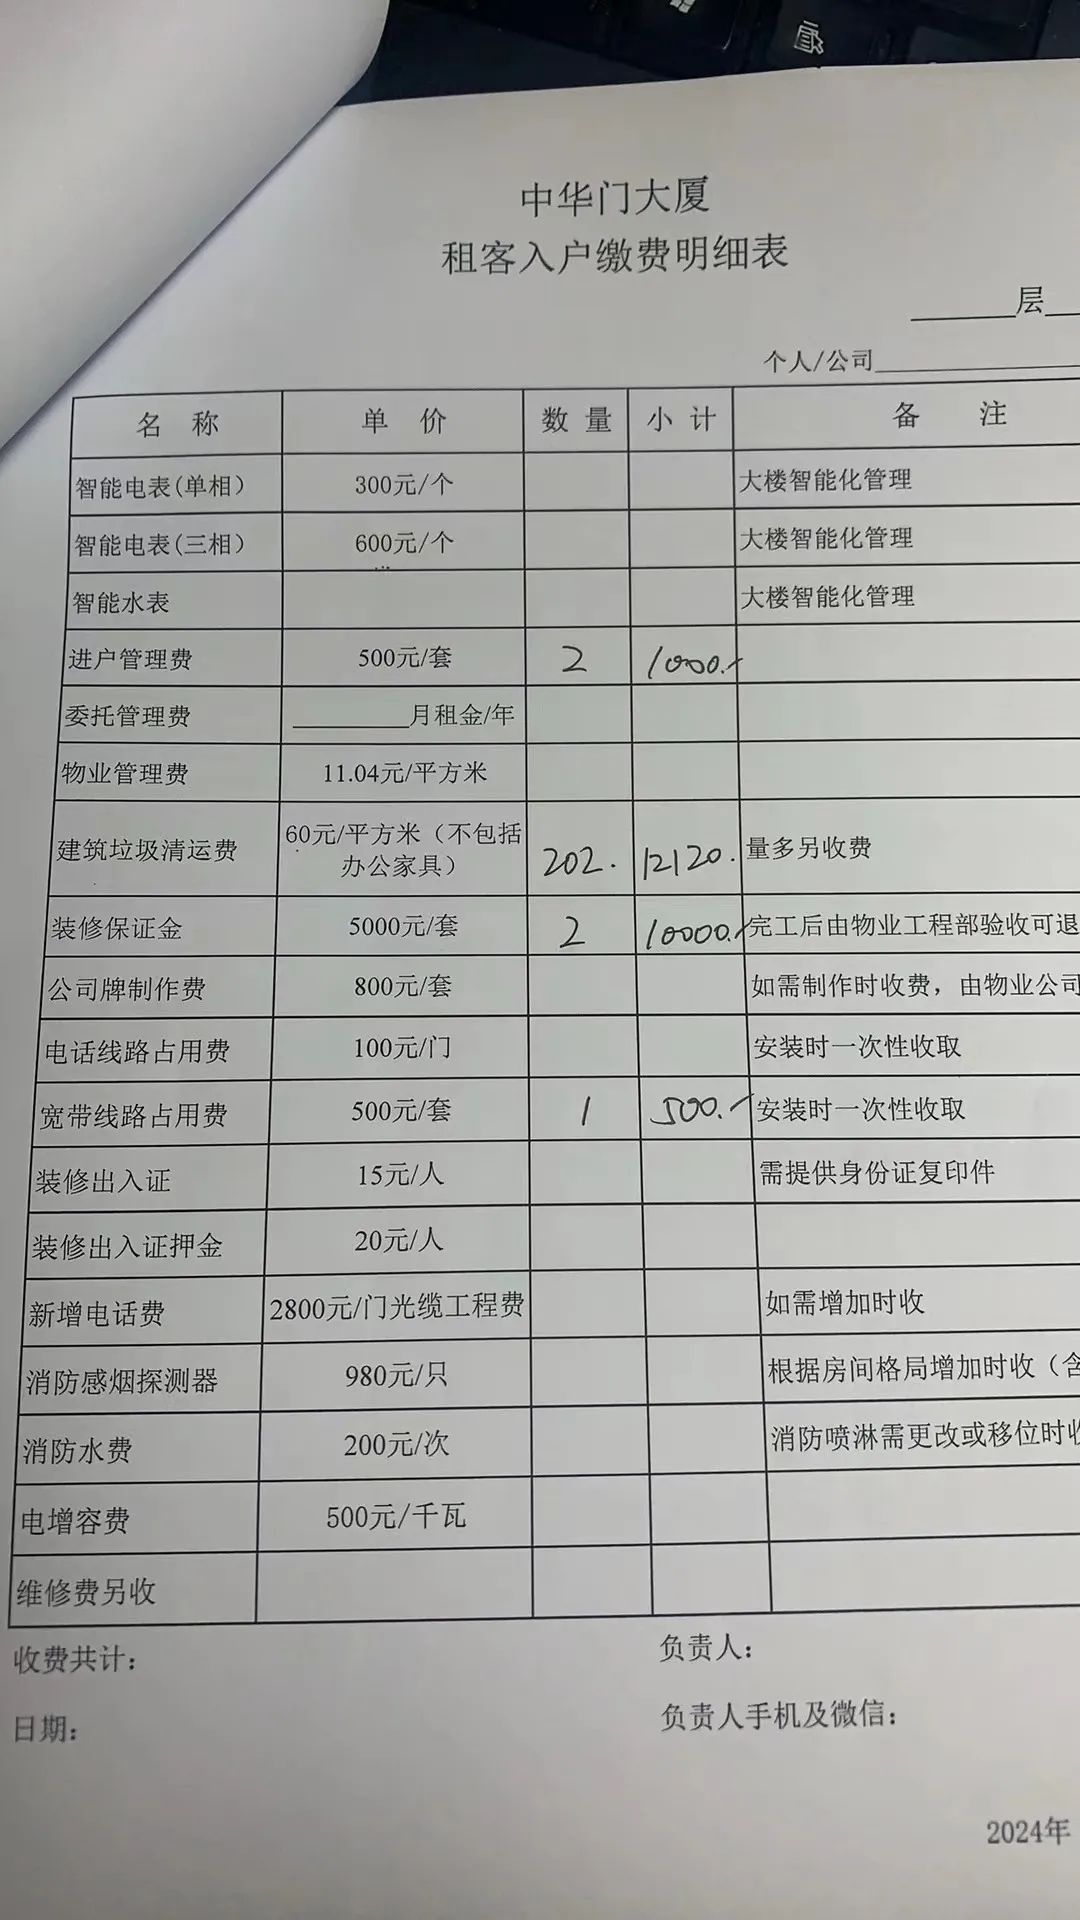 中华门大厦
租客入户缴费明细表
______层__
个人/公司____________
名 称 单 价 数 量 小 计 备 注
智能电表(单相) 300元/个 大楼智能化管理
智能电表(三相) 600元/个 大楼智能化管理
智能水表 大楼智能化管理
进户管理费 500元/套 2 1000.-
委托管理费 ________月租金/年
物业管理费 11.04元/平方米
建筑垃圾清运费 60元/平方米（不包括办公家具） 202. 12120. 量多另收费
装修保证金 5000元/套 2 10000.- 完工后由物业工程部验收可退
公司牌制作费 800元/套 如需制作时收费，由物业公司
电话线路占用费 100元/门 安装时一次性收取
宽带线路占用费 500元/套 1 500.- 安装时一次性收取
装修出入证 15元/人 需提供身份证复印件
装修出入证押金 20元/人
新增电话费 2800元/门光缆工程费 如需增加时收
消防感烟探测器 980元/只 根据房间格局增加时收（含
消防水费 200元/次 消防喷淋需更改或移位时收
电增容费 500元/千瓦
维修费另收
收费共计： 负责人：
日期： 负责人手机及微信：
2024年